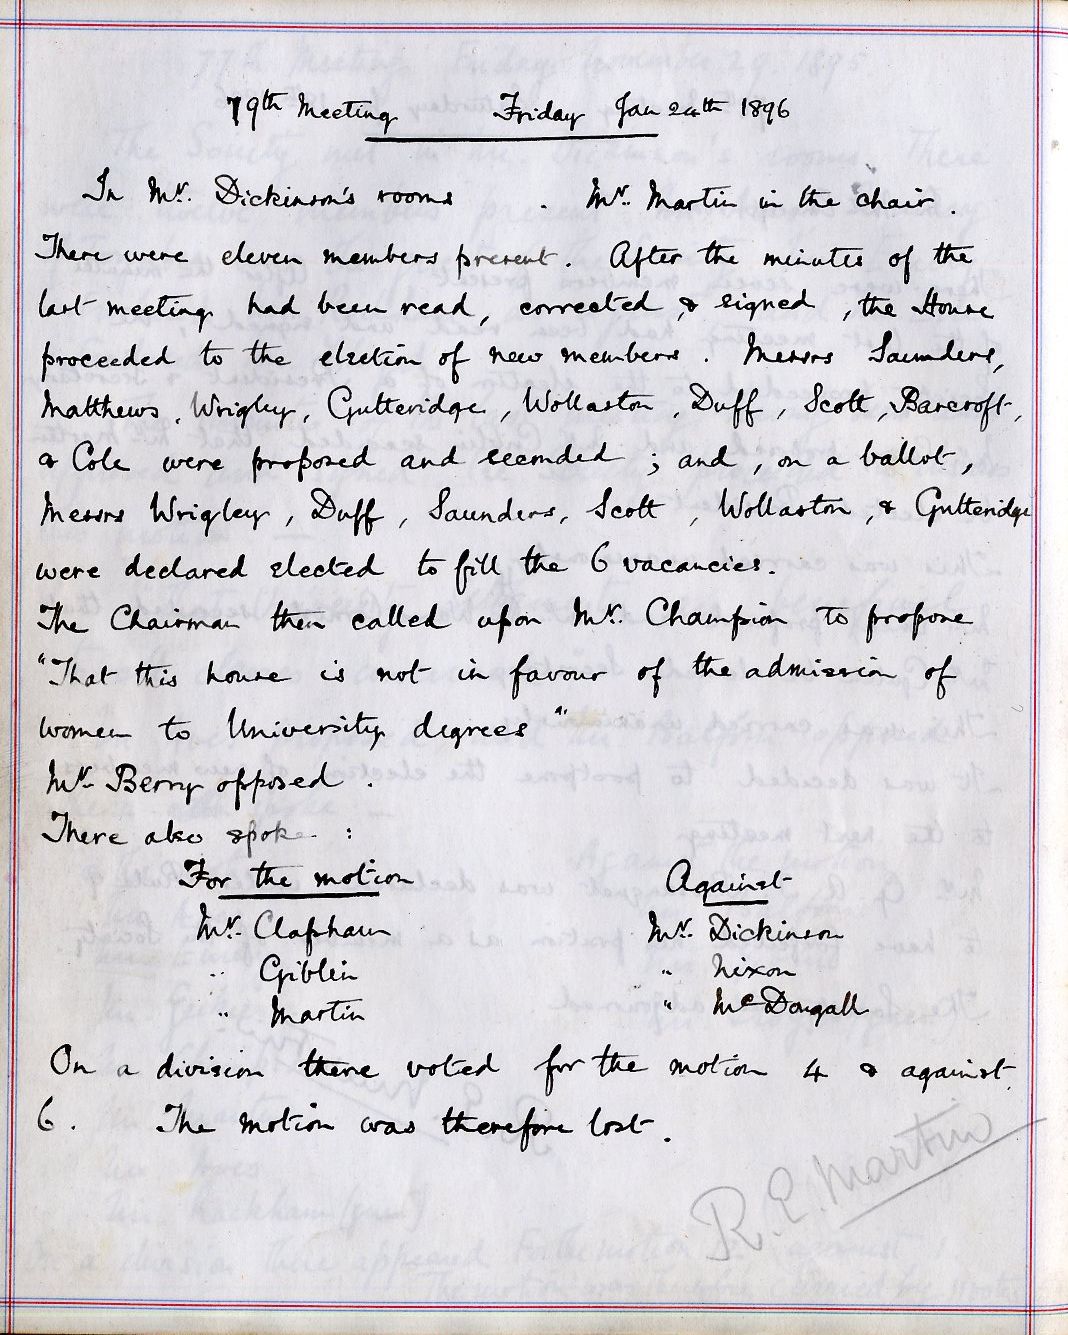 79th Meeting Friday Jan 24th 1896
In Mr. Dickinson's rooms . Mr. Martin in the chair .
There were eleven members present . After the minutes of the
last meeting had been read, corrected & signed , the House
proceeded to the election of new members . Messrs Saunders,
Matthews, Wrigley, Gutteridge, Wollaston, Duff, Scott, Barcroft,
& Cole were proposed and seconded ; and , on a ballot,
Messrs Wrigley, Duff, Saunders, Scott, Wollaston, & Gutteridge
were declared elected to fill the 6 vacancies.
The Chairman then called upon Mr. Champion to propose
"That this house is not in favour of the admission of
women to University degrees"
Mr. Berry opposed .
There also spoke :
For the motion Against
Mr. Clapham Mr. Dickinson
" Giblin " Nixon
" Martin " McDougall
On a division there voted for the motion 4 & against
6 . The motion was therefore lost .
R. E. Martin